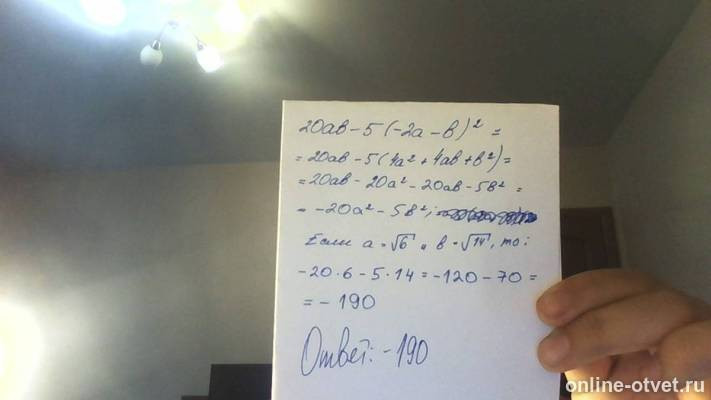 20ав-5(-2а-в)² =
= 20ав-5(4а²+4ав+в²)=
=20ав-20а²-20ав-5в² =
= -20а²-5в²;
Если а=√6 и в=√14, то:
-20·6-5·14=-120-70=
= -190
Ответ: -190
online-otvet.ru